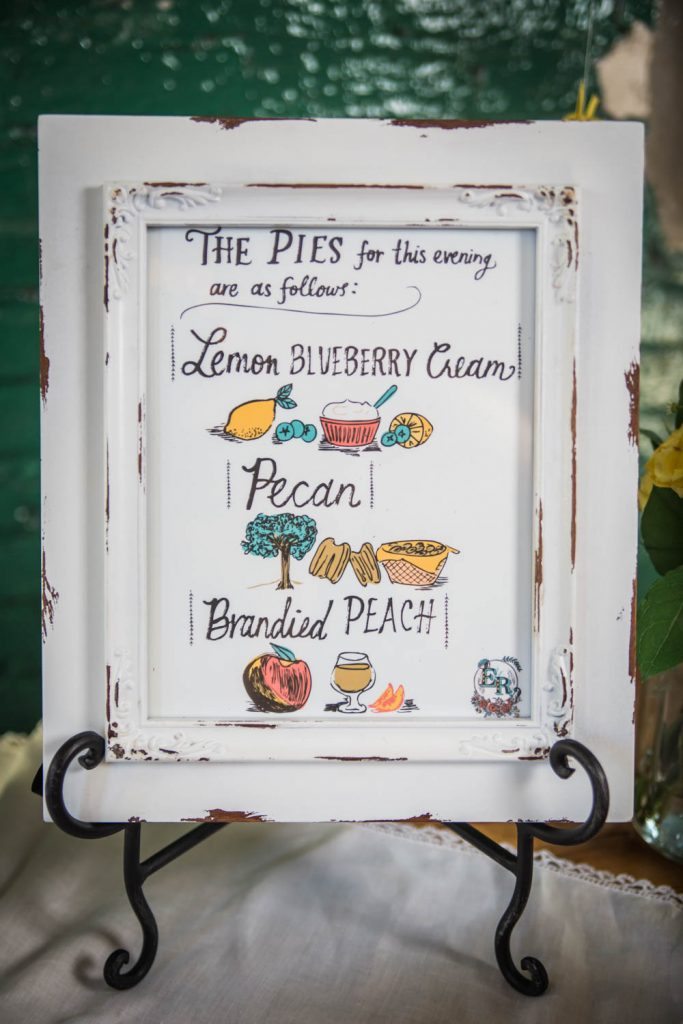 THE PIES for this evening
are as follows:
Lemon BLUEBERRY Cream
Pecan
Brandied PEACH
ER